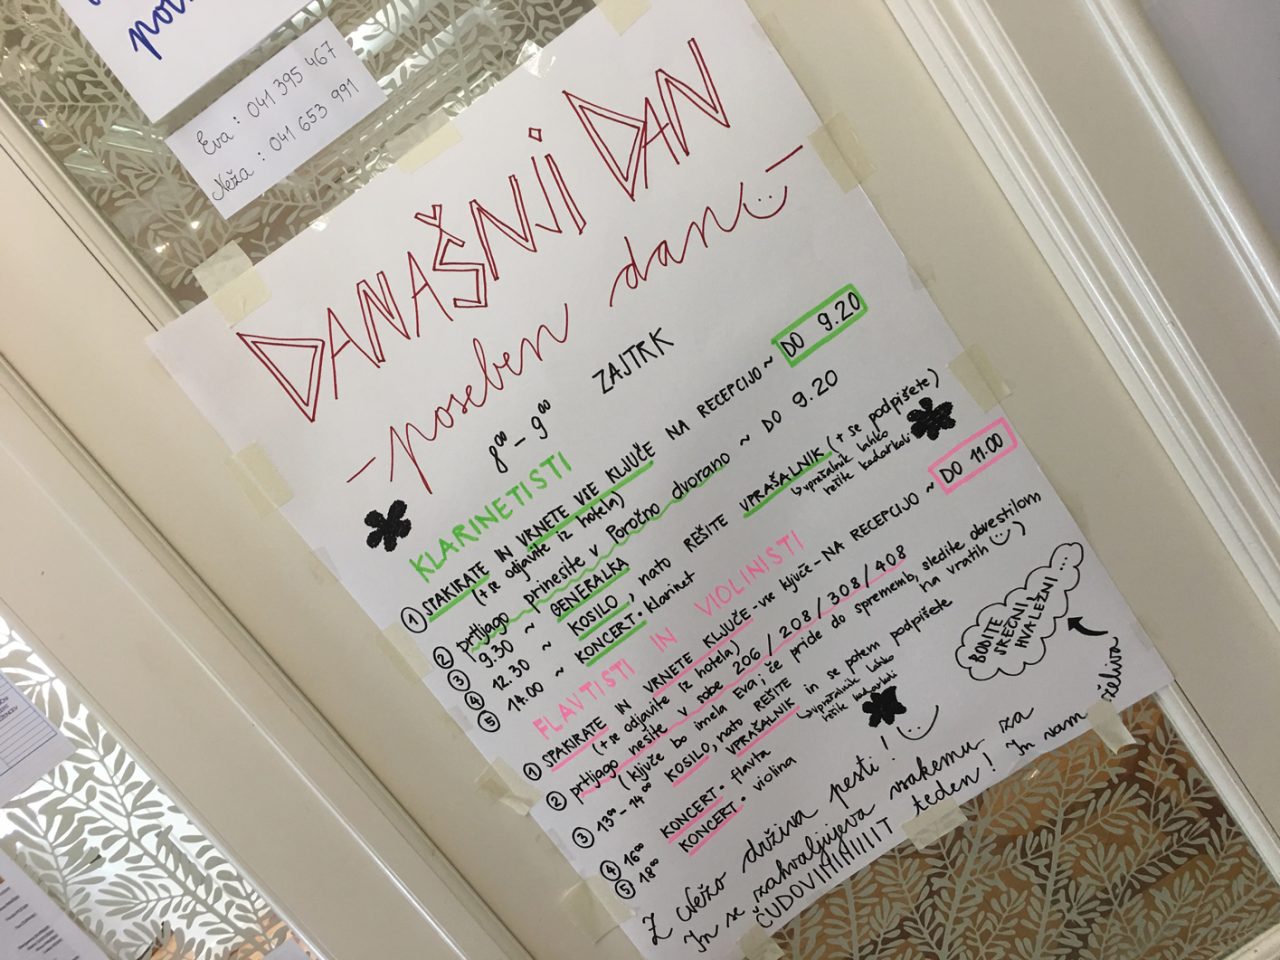 Eva : 041 395 467
Neža : 041 653 991
DANAŠNJI DAN
- poseben dan :) -
8⁰⁰ - 9⁰⁰ ZAJTRK
KLARINETISTI
① SPAKIRATE IN VRNETE VSE KLJUČE NA RECEPCIJO ~ DO 9.20
(+ se odjavite iz hotela)
② prtljago prinesite v Poročno dvorano ~ DO 9.20
③ 9.30 ~ GENERALKA
④ 12.30 ~ KOSILO, nato REŠITE VPRAŠALNIK (+ se podpišete)
↳ vprašalnik lahko
rešite kadarkoli
⑤ 14.00 ~ KONCERT • klarinet
FLAVTISTI IN VIOLINISTI
① SPAKIRATE IN VRNETE KLJUČE - vse ključe - NA RECEPCIJO ~ DO 11.00
(+ se odjavite iz hotela)
② prtljago nesite v sobe 206 / 208 / 308 / 408
(ključe bo imela Eva i če pride do sprememb, sledite obvestilom
na vratih :))
③ 13⁰⁰ - 14⁰⁰ KOSILO, nato REŠITE
VPRAŠALNIK in se potem podpišete
↳ vprašalnik lahko
rešite kadarkoli
④ 16⁰⁰ KONCERT • flavta
⑤ 18⁰⁰ KONCERT • violina
BODITE
SREČNI,
HVALEŽNI ...
Z Nežo drživa pesti ! :)
In se zahvaljujeva vsakemu za
ČUDOVIIIIIIIIT teden ! In vam
želiva